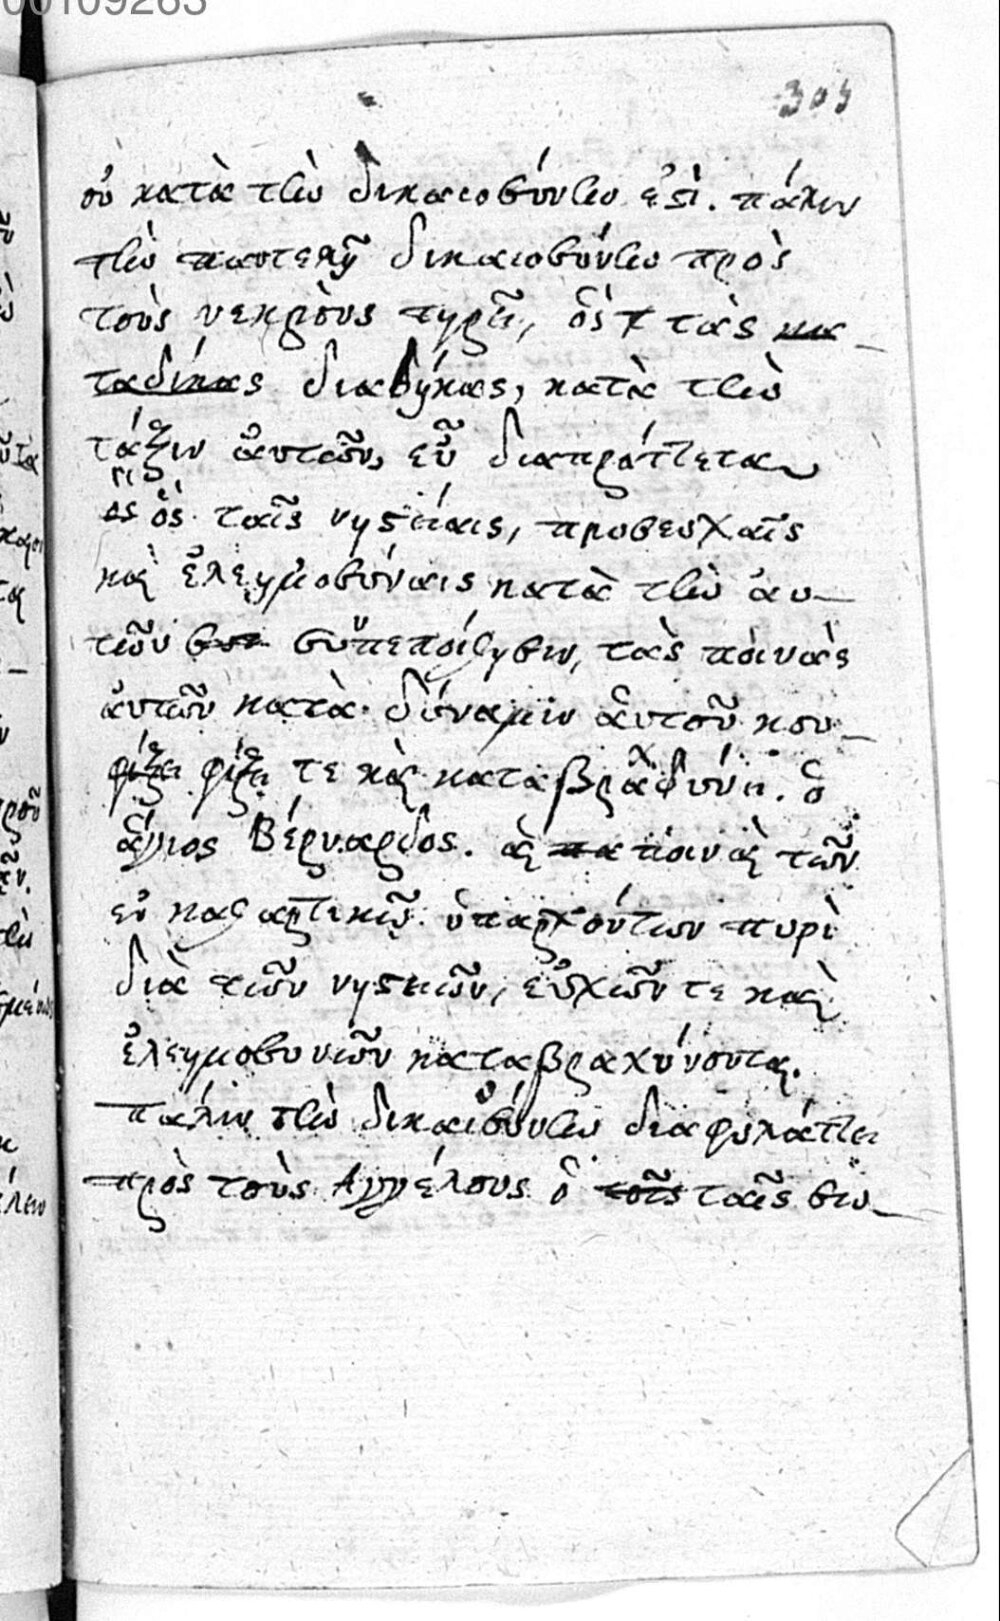 00109263
305
οὐ κατὰ τὴν δικαιοσύνην ἐστὶ. πάλιν
τὴν παντελῆ δικαιοσύνην πρὸς
τοὺς νεκροὺς τηρεῖ, ὃς τὰς κα-
ταδίκας διαθήκας, κατὰ τὴν
τάξιν ἀυτῶν, εὖ διαπράττεται
ὃς ταῖς νηστείαις, προσευχαῖς
καὶ ἐλεημοσύναις κατὰ τὴν ἀυ-
τῶν συμπεποίθησιν, τὰς ποινὰς
ἀυτῶν κατὰ δύναμιν ἀυτοῦ κου-
φίξει φίξει τε καὶ καταβραχύνει. ὁ
ἅγιος Βέρναρδος. αἱ ποιναὶ τῶν
ἐν καθαρτικῷ ὑπαρχόντων πυρὶ
διὰ τῶν νηστειῶν, εὐχῶν τε καὶ
ἐλεημοσυνῶν καταβραχύνονται.
πάλιν τὴν δικαιοσύνην διαφυλάττει
πρὸς τοὺς Αγγέλους ὁ τοῖς ταῖς συν-